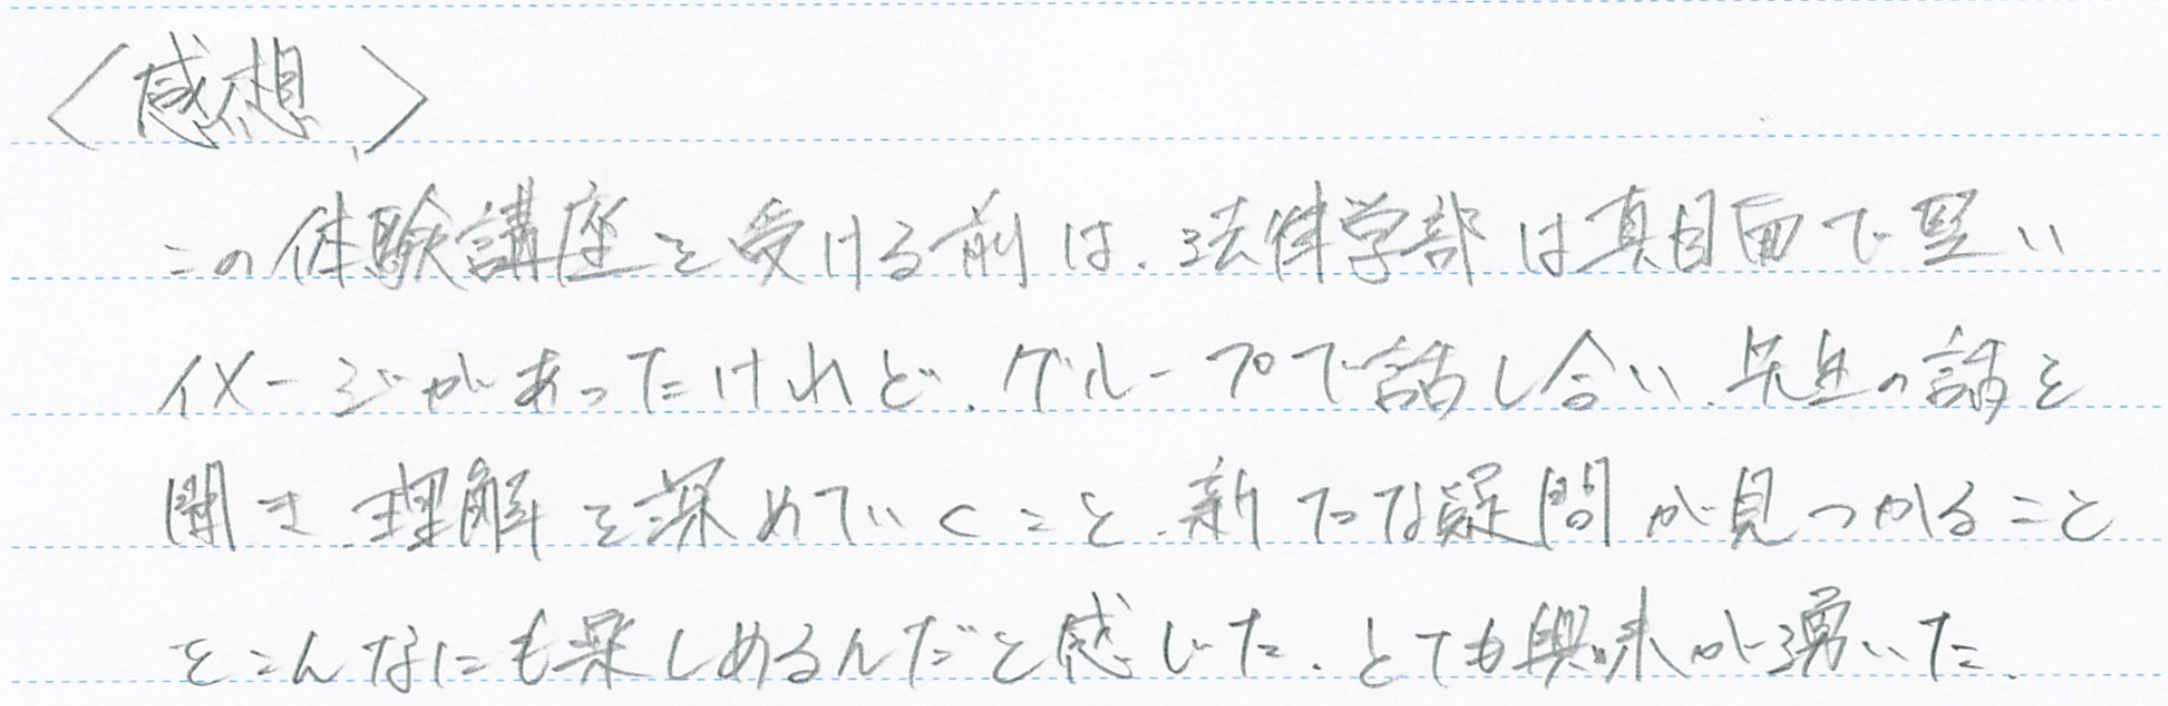 〈感想〉
この体験講座を受ける前は、法律学部は真面目で堅い
イメージがあったけれど、グループで話し合い、先生の話を
聞き、理解を深めていくこと、新たな疑問が見つかること
をこんなにも楽しめるんだと感じた。とても興味が湧いた。